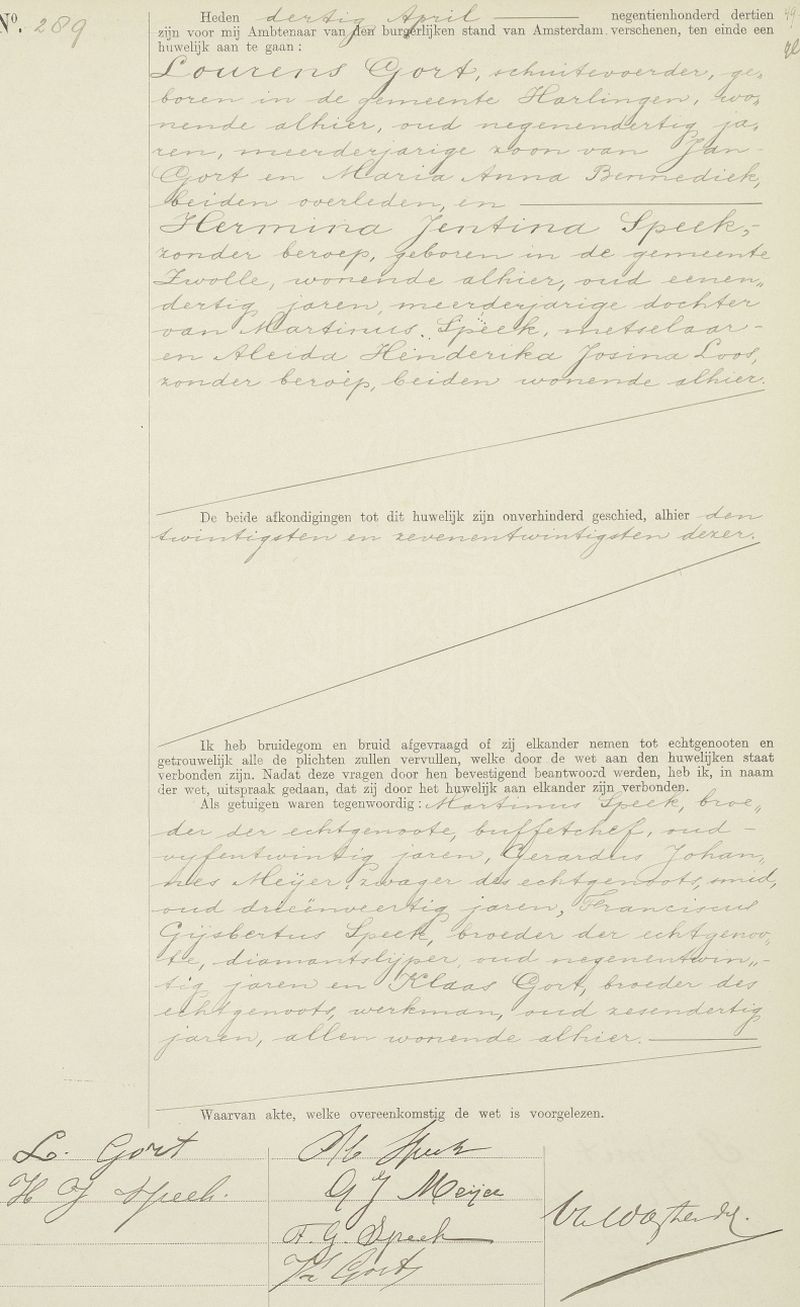 Nº. 289
Heden dertig April negentienhonderd dertien
zijn voor mij Ambtenaar van den burgerlijken stand van Amsterdam verschenen, ten einde een
huwelijk aan te gaan:
Lourens Gort, schuitevoerder, ge„
boren in de gemeente Harlingen, wo„
nende alhier, oud negenendertig ja„
ren, meerderjarige zoon van Jan
Gort en Maria Anna Bennediek,
beiden overleden, en
Hermina Jentina Speek,
zonder beroep, geboren in de gemeente
Zwolle, wonende alhier, oud eenen„
dertig jaren, meerderjarige dochter
van Martinus Speek, metselaar
en Aleida Henderika Josina Loos,
zonder beroep, beiden wonende alhier.
De beide afkondigingen tot dit huwelijk zijn onverhinderd geschied, alhier den
twintigsten en zevenentwintigsten dezer.
Ik heb bruidegom en bruid afgevraagd of zij elkander nemen tot echtgenooten en
getrouwelijk alle de plichten zullen vervullen, welke door de wet aan den huwelijken staat
verbonden zijn. Nadat deze vragen door hen bevestigend beantwoord werden, heb ik, in naam
der wet, uitspraak gedaan, dat zij door het huwelijk aan elkander zijn verbonden.
Als getuigen waren tegenwoordig: Martinus Speek, broe„
der der echtgenoote, buffetchef, oud
vijfentwintig jaren, Gerardus Johan„
nes Meijer, zwager des echtgenoots, smid,
oud drieënveertig jaren, Franciscus
Gijsbertus Speek, broeder der echtgenoo„
te, diamantslijper, oud negenentwin„
tig jaren en Klaas Gort, broeder des
echtgenoots, werkman, oud zesendertig
jaren, allen wonende alhier.
Waarvan akte, welke overeenkomstig de wet is voorgelezen.
L. Gort
H J Speek.
M Speek
G J Meijer
F. G. Speek
K Gort